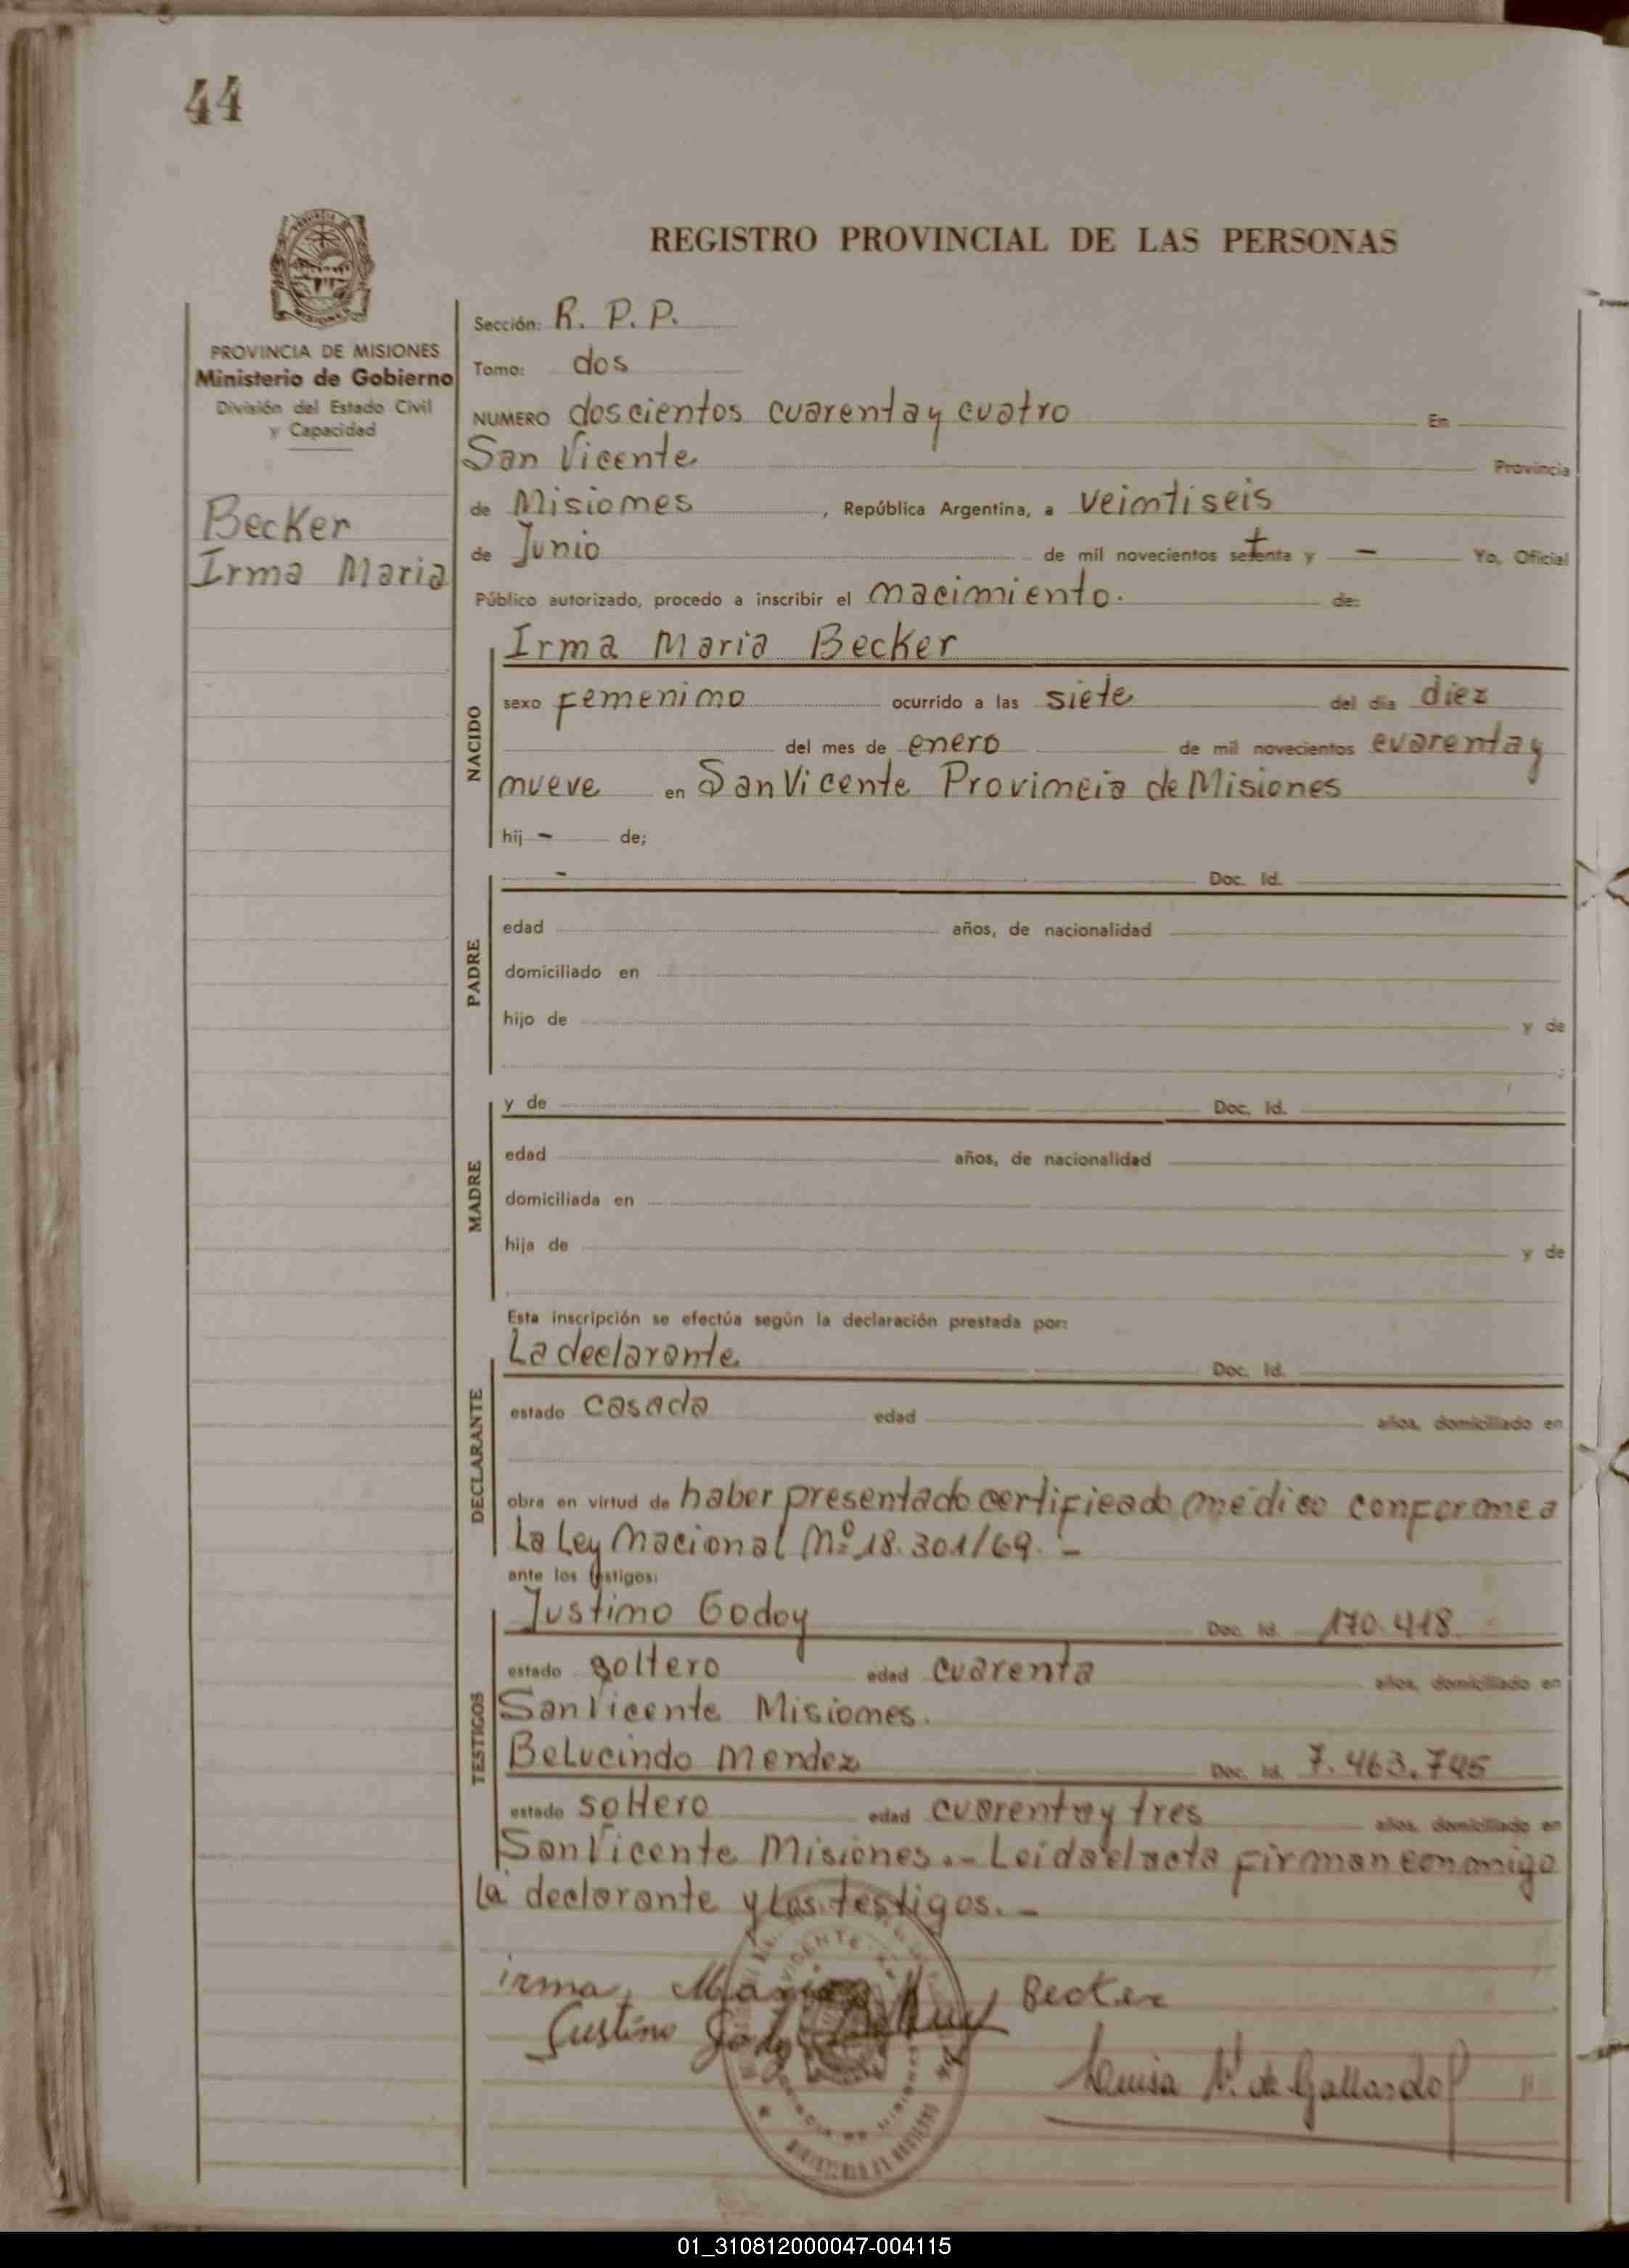 44
REGISTRO PROVINCIAL DE LAS PERSONAS
PROVINCIA DE MISIONES
Ministerio de Gobierno
División del Estado Civil
y Capacidad
Becker
Irma Maria
Sección: R. P. P.
Tomo: dos
NUMERO doscientos cuarenta y cuatro En
San Vicente Provincia
de Misiones, República Argentina, a veintiseis
de Junio de mil novecientos setenta y — Yo, Oficial
Público autorizado, procedo a inscribir el nacimiento. de:
NACIDO
Irma Maria Becker
sexo femenino ocurrido a las siete del día diez
del mes de enero de mil novecientos cuarenta y
nueve en San Vicente Provincia de Misiones
hij - de;
PADRE
- Doc. Id.
edad años, de nacionalidad
domiciliado en
hijo de y de
MADRE
y de Doc. Id.
edad años, de nacionalidad
domiciliada en
hija de y de
Esta inscripción se efectúa según la declaración prestada por:
DECLARANTE
La declarante Doc. Id.
estado casada edad años, domiciliado en
obra en virtud de haber presentado certificado médico conforme a
La Ley Nacional Nº 18.301/69. -
ante los testigos:
TESTIGOS
Justino Godoy Doc. Id. 170.418
estado soltero edad cuarenta años, domiciliado en
San Vicente Misiones.
Belucindo Mendez Doc. Id. 7.463.745
estado soltero edad cuarenta y tres años, domiciliado en
San Vicente Misiones.- Leida el acta firman conmigo
la declarante y Los testigos. -
irma, Maria Becker
Justino Godoy
Luisa N. de Gallardo
01_310812000047-004115